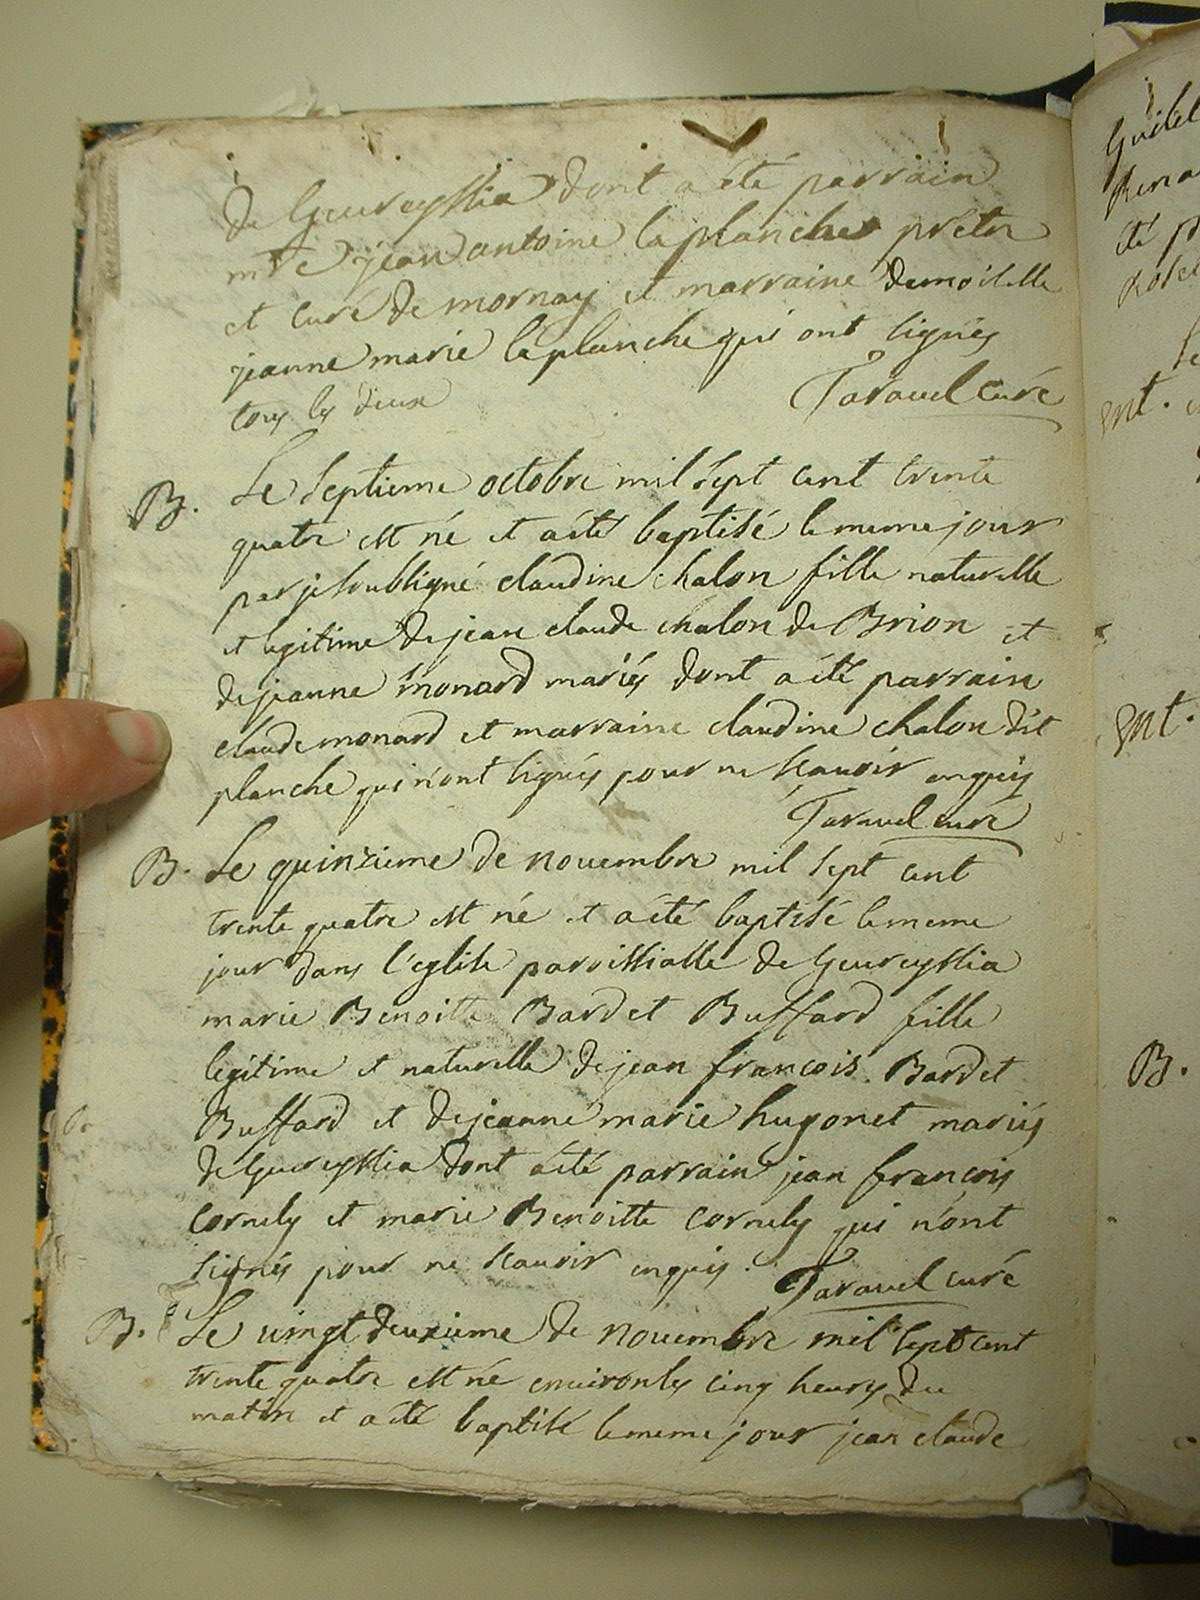 de Geureyssia dont a été parrain
mre jean antoine laplanche pretre
et curé de mornay et marraine demoiselle
jeanne marie laplanche qui ont signés
tous les deux
Taravel curé
B. Le septieme octobre mil sept cent trente
quatre est né et a été baptisé le meme jour
par je soubsigné claudine chalon fille naturelle
et legitime de jean claude chalon de Brion et
de jeanne monard mariés dont a été parrain
claude monard et marraine claudine chalon dit
planche qui n'ont signés pour ne scavoir enquis
Taravel curé
B. Le quinzieme de novembre mil sept cent
trente quatre est né et a été baptisé le meme
jour dans l'eglise paroissialle de Geureyssia
marie Benoitte Bardet Buffard fille
legitime et naturelle de jean francois Bardet
Buffard et de jeanne marie hugonet mariés
de Geureyssia dont a été parrain jean francois
cornely et marie Benoitte cornely qui n'ont
signés pour ne scavoir enquis.
Taravel curé
B. Le vingt deuxieme de novembre mil sept cent
trente quatre est né environ les cinq heures du
matin et a été baptisé le meme jour jean claude
été
ent.
ent.
B.